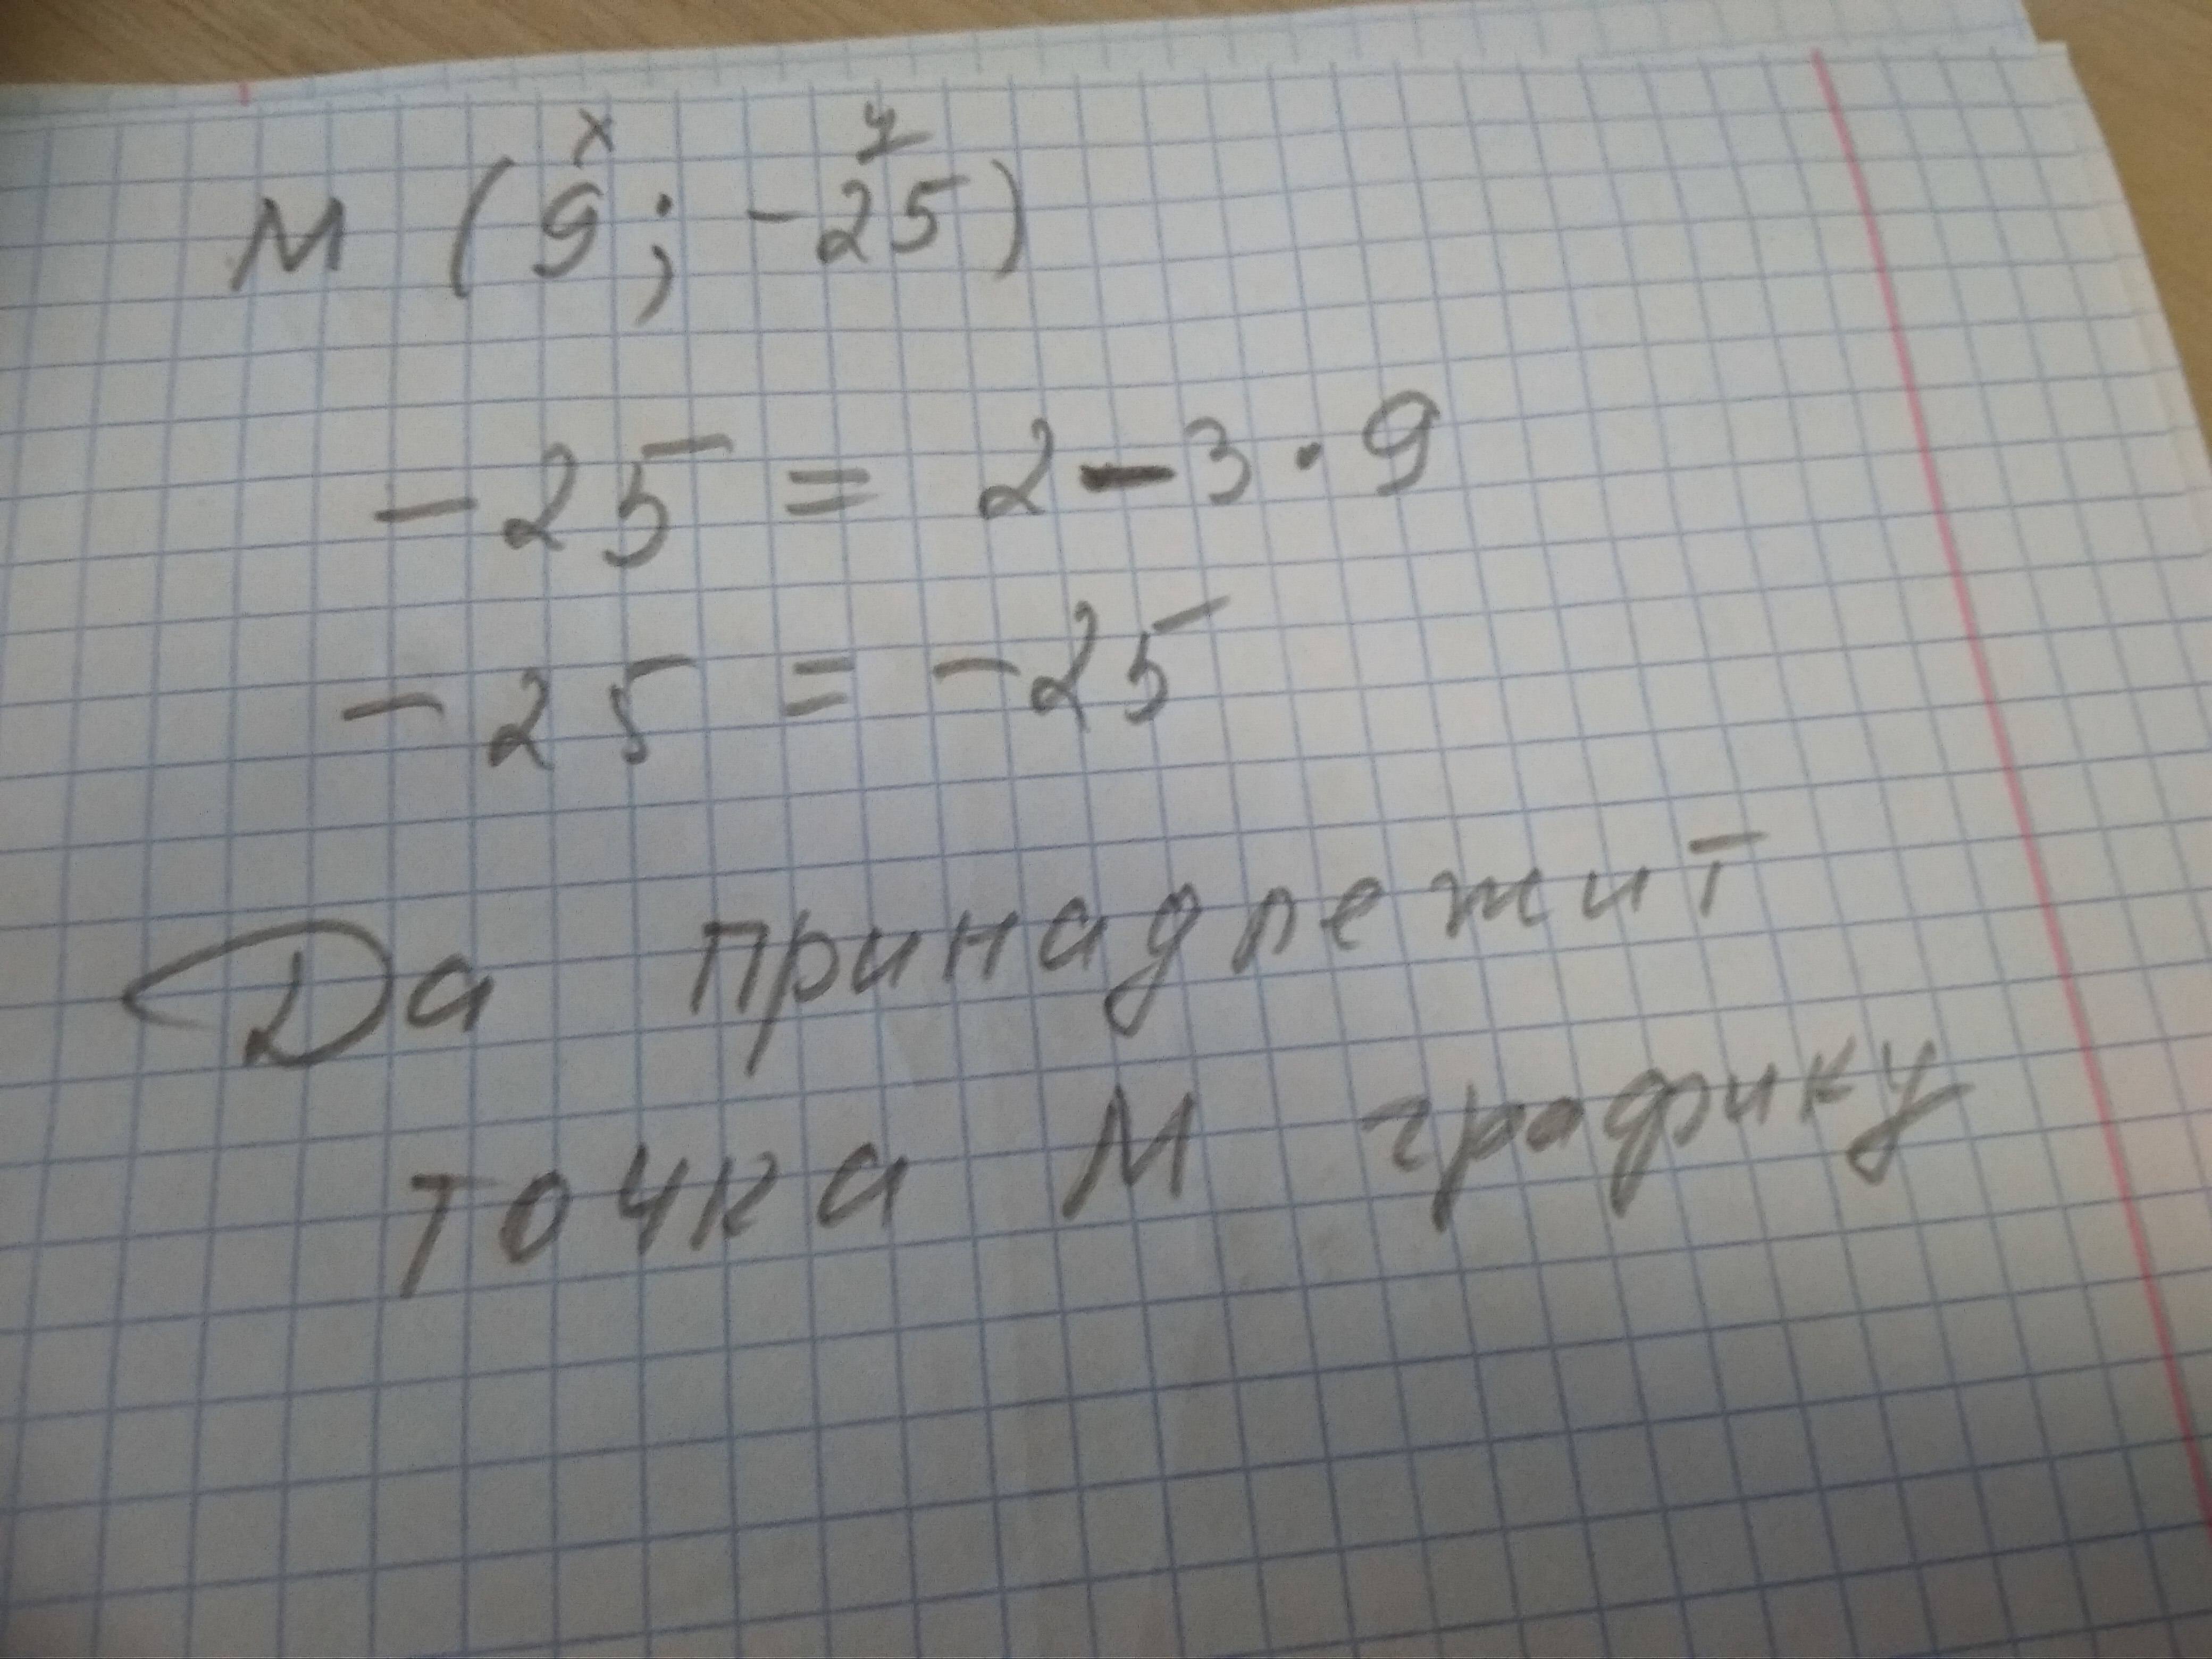 x y
M (9; -25)
-25 = 2-3·9
-25 = -25
Да принадлежит
точка М графику